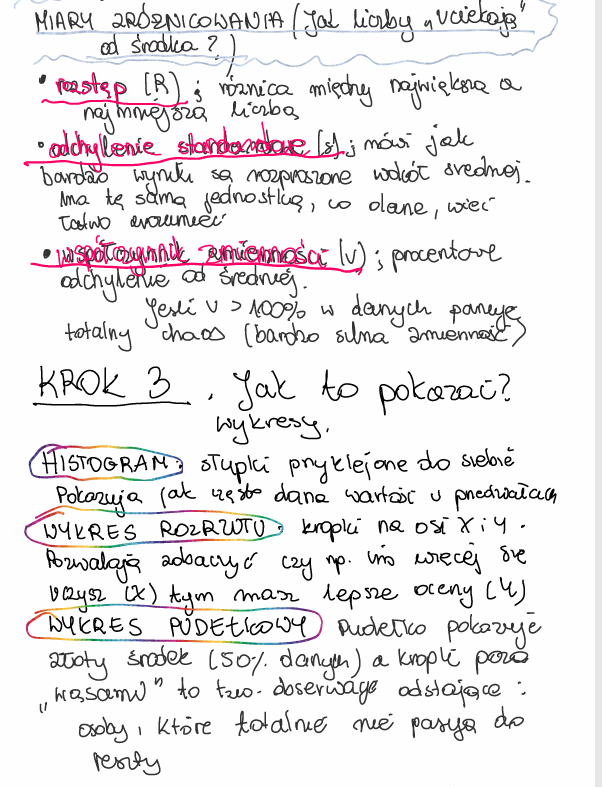 MIARY ZRÓŻNICOWANIA (Jak liczby „uciekają”
od środka?)
• rozstęp (R) ; różnica między największą a
najmniejszą liczbą
• odchylenie standardowe (s) ; mówi jak
bardzo wyniki są rozproszone wokół średniej.
Ma tę samą jednostkę, co dane, więc
łatwo zrozumieć
• współczynnik zmienności (V) ; procentowe
odchylenie od średniej.
Jeśli V > 100% w danych panuje
totalny chaos (bardzo silna zmienność)
KROK 3. Jak to pokazać?
wykresy.
HISTOGRAM: słupki przyklejone do siebie
Pokazują jak często dana wartość w przedziałach
WYKRES ROZRZUTU: kropki na osi X i Y.
Pozwalają zobaczyć czy np. im więcej się
uczysz (X) tym masz lepsze oceny (Y)
WYKRES PUDEŁKOWY Pudełko pokazuje
złoty środek (50% danych) a kropki poza
„wąsami” to tzw. obserwacje odstające :
osoby, które totalnie nie pasują do
reszty